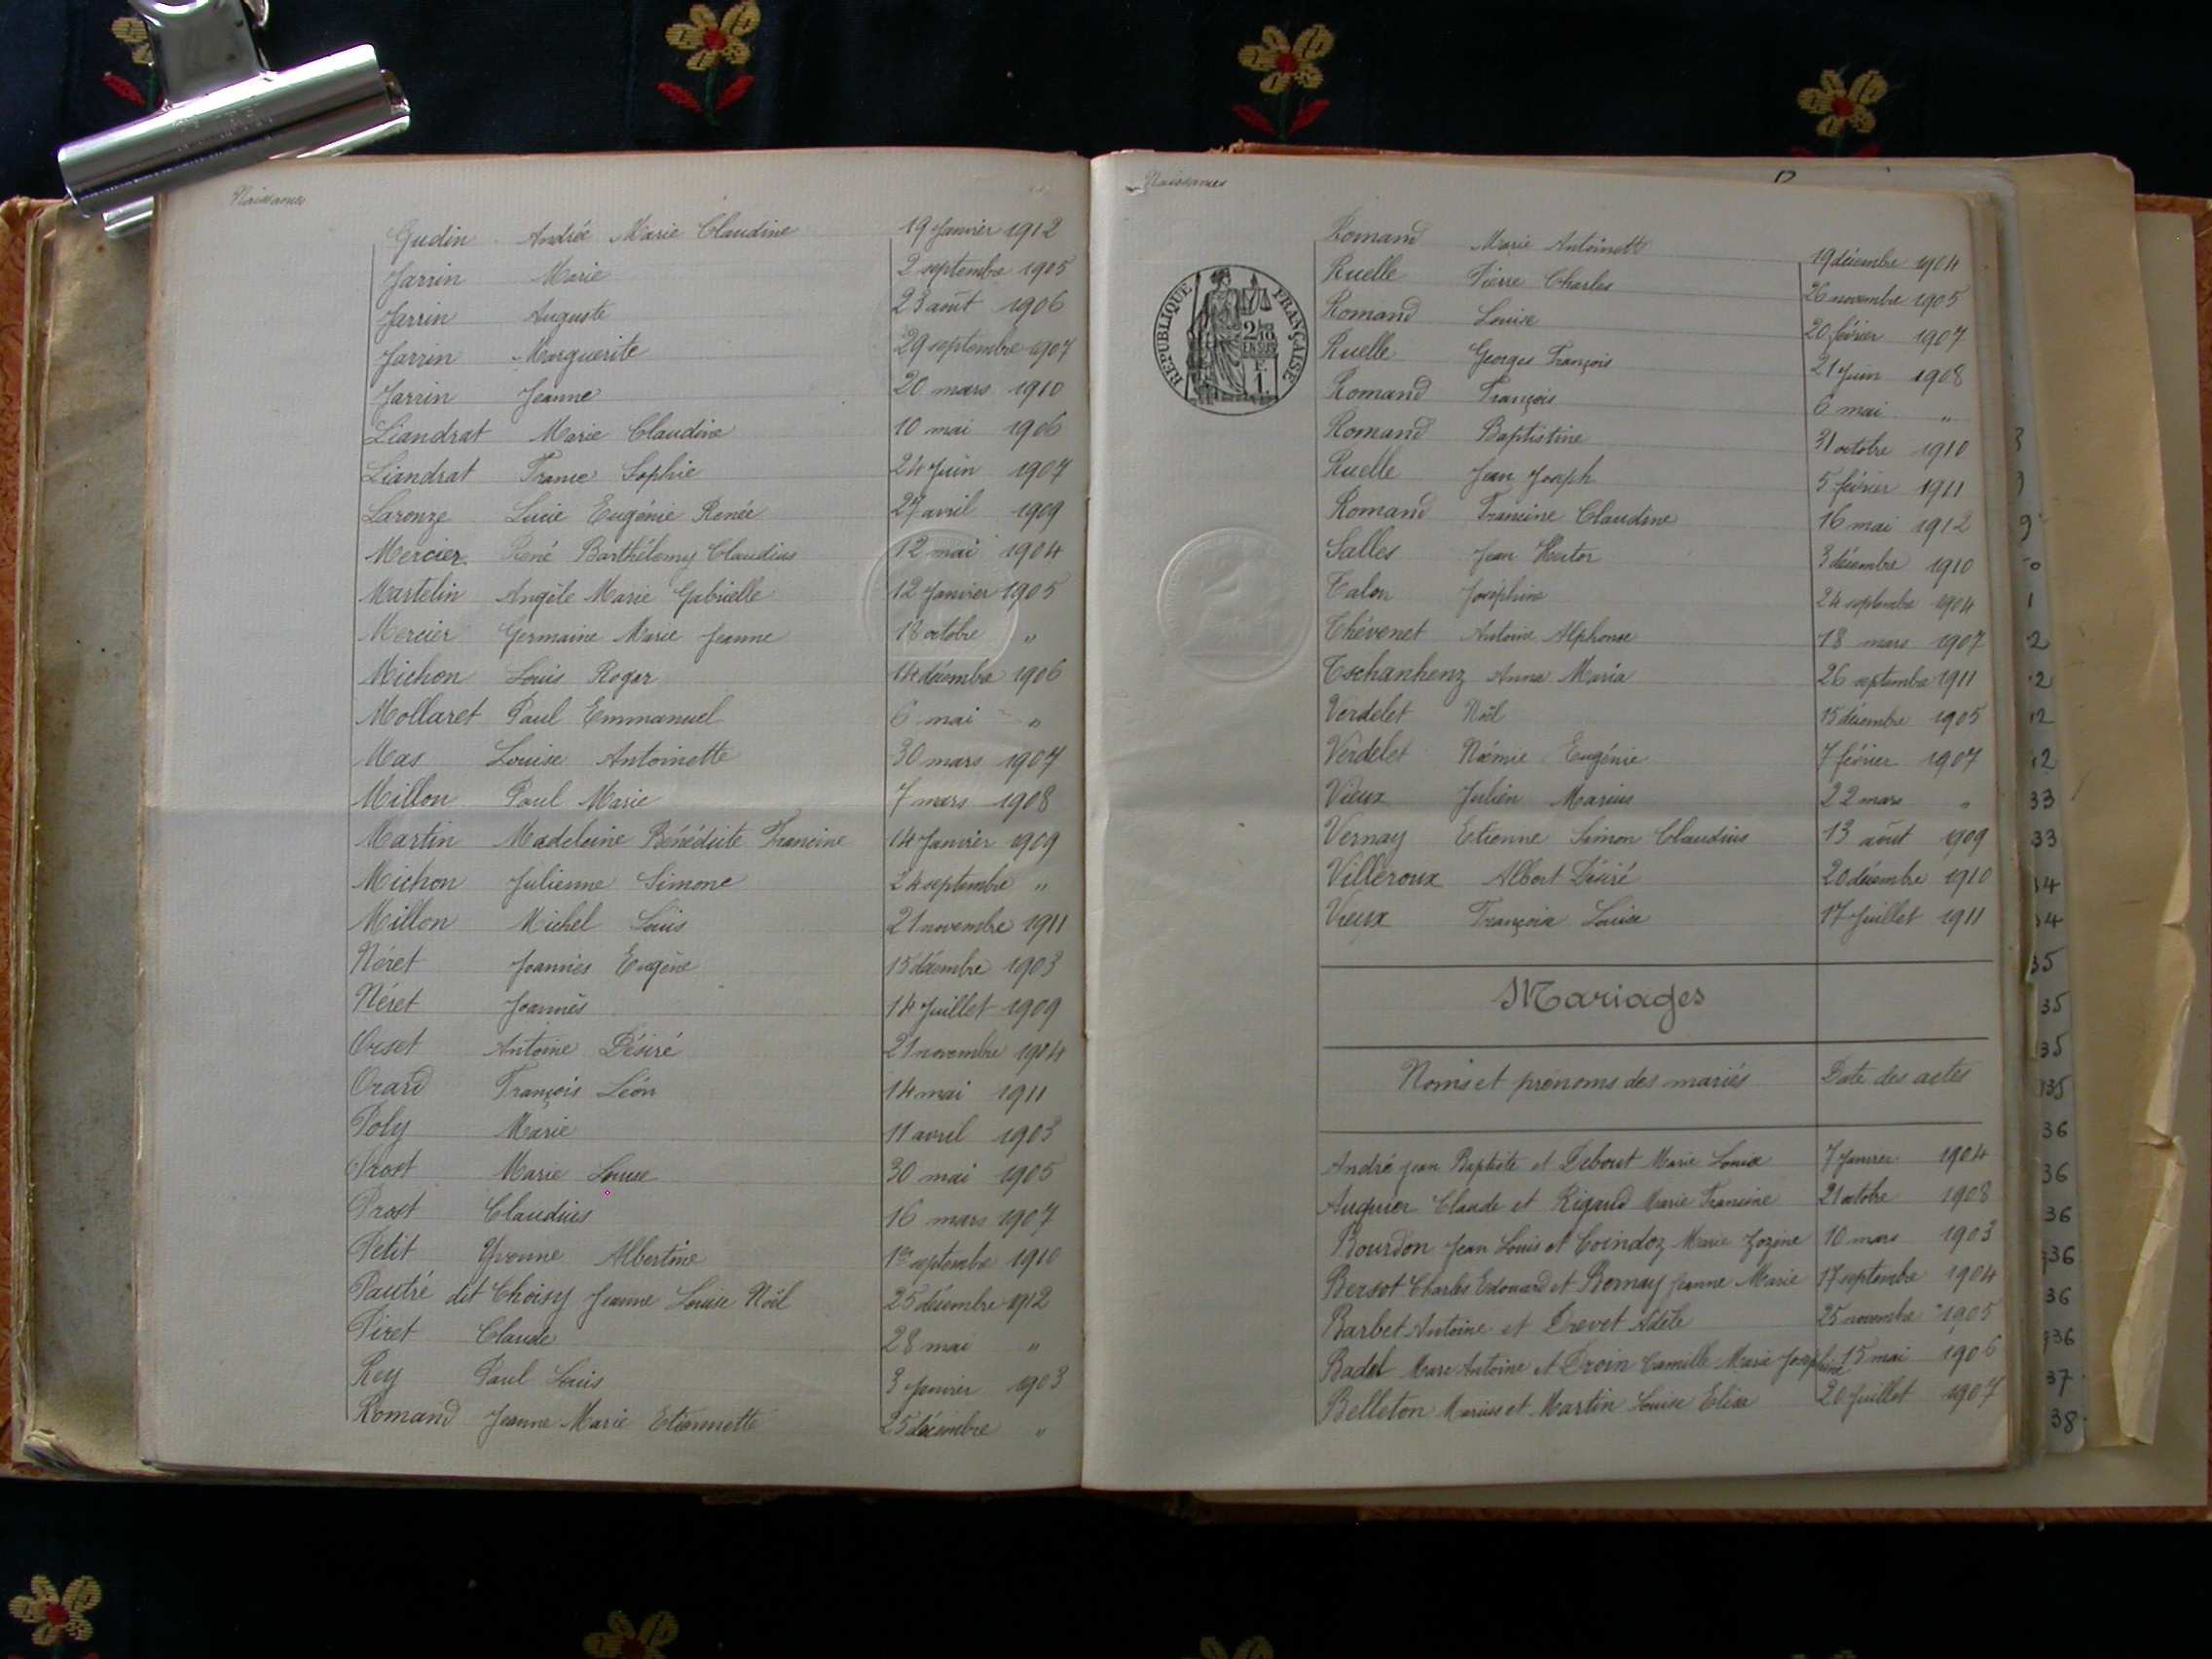 Naissances
Gudin Andrée Marie Claudine 19 Janvier 1912
Jarrin Marie 2 septembre 1905
Jarrin Auguste 23 août 1906
Jarrin Marguerite 29 septembre 1907
Jarrin Jeanne 20 mars 1910
Liandrat Marie Claudine 10 mai 1906
Liandrat France Sophie 24 Juin 1907
Laronze Lucie Eugénie Renée 27 avril 1909
Mercier René Barthélemy Claudius 12 mai 1904
Martelin Angèle Marie Gabrielle 12 Janvier 1905
Mercier Germaine Marie Jeanne 18 octobre "
Michon Louis Roger 14 décembre 1906
Mollaret Paul Emmanuel 6 mai "
Mas Louise Antoinette 30 mars 1907
Millon Paul Marie 7 mars 1908
Martin Madeleine Bénédicte Francine 14 Janvier 1909
Michon Julienne Simone 24 septembre "
Millon Michel Louis 21 novembre 1911
Néret Joannès Eugène 15 décembre 1903
Néret Joannès 14 Juillet 1909
Orset Antoine Désiré 21 novembre 1904
Orard François Léon 14 mai 1911
Poly Marie 11 avril 1903
Prost Marie Louise 30 mai 1905
Prost Claudius 16 mars 1907
Petit Yvonne Albertine 1er septembre 1910
Pautré dit Choisy Jeanne Louise Noël 25 décembre 1912
Piret Claude 28 mai "
Rey Paul Louis 3 Janvier 1903
Romand Jeanne Marie Etiennette 25 décembre "
Naissances
RÉPUBLIQUE FRANÇAISE
Romand Marie Antoinette 19 décembre 1904
Ruelle Pierre Charles 26 novembre 1905
Romand Louise 20 février 1907
Ruelle Georges François 21 Juin 1908
Romand François 6 mai "
Romand Baptistine 31 octobre 1910
Ruelle Jean Joseph 5 février 1911
Romand Francine Claudine 16 mai 1912
Salles Jean Hector 3 décembre 1910
Talon Joséphine 24 septembre 1904
Thévenet Antoine Alphonse 18 mars 1907
Tschanhenz Anna Maria 26 septembre 1911
Verdelet Noël 15 décembre 1905
Verdelet Noémie Eugénie 7 février 1907
Vieux Julien Marius 22 mars "
Vernay Etienne Simon Claudius 13 août 1909
Villeroux Albert Désiré 20 décembre 1910
Vieux François Louis 17 Juillet 1911
Mariages
Noms et prénoms des mariés Date des actes
André Jean Baptiste et Debout Marie Louise 7 Janvier 1904
Auguier Claude et Rigaud Marie Francine 21 octobre 1908
Bourdon Jean Louis et Coindoz Marie 10 mars 1903
Bersot Charles Edouard et Bornay Jeanne Marie 17 septembre 1904
Barbet Antoine et Drevet Adèle 25 novembre 1905
Badel Marc Antoine et Droin Camille Marie Joséphine 15 mai 1906
Belleton Marius et Martin Louise Elisa 20 Juillet 1907
33
33
35
35
35
135
36
36
36
36
36
36
37
38